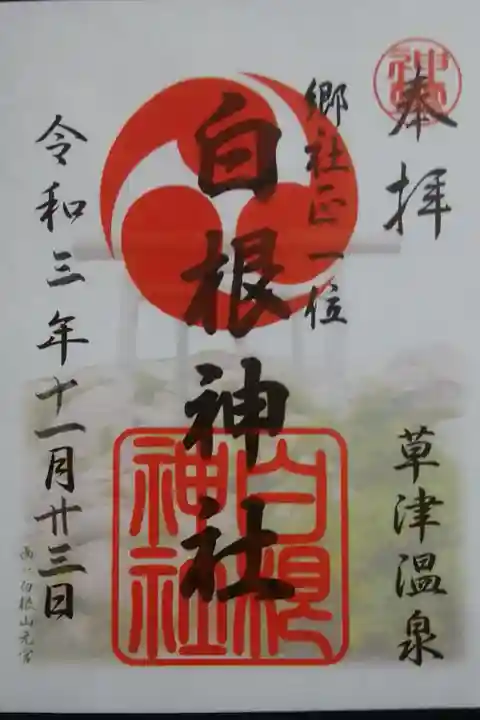 奉拝
草津温泉
郷社正一位
白根神社
白根
神社
令和三年十一月廿三日
白根山元宮